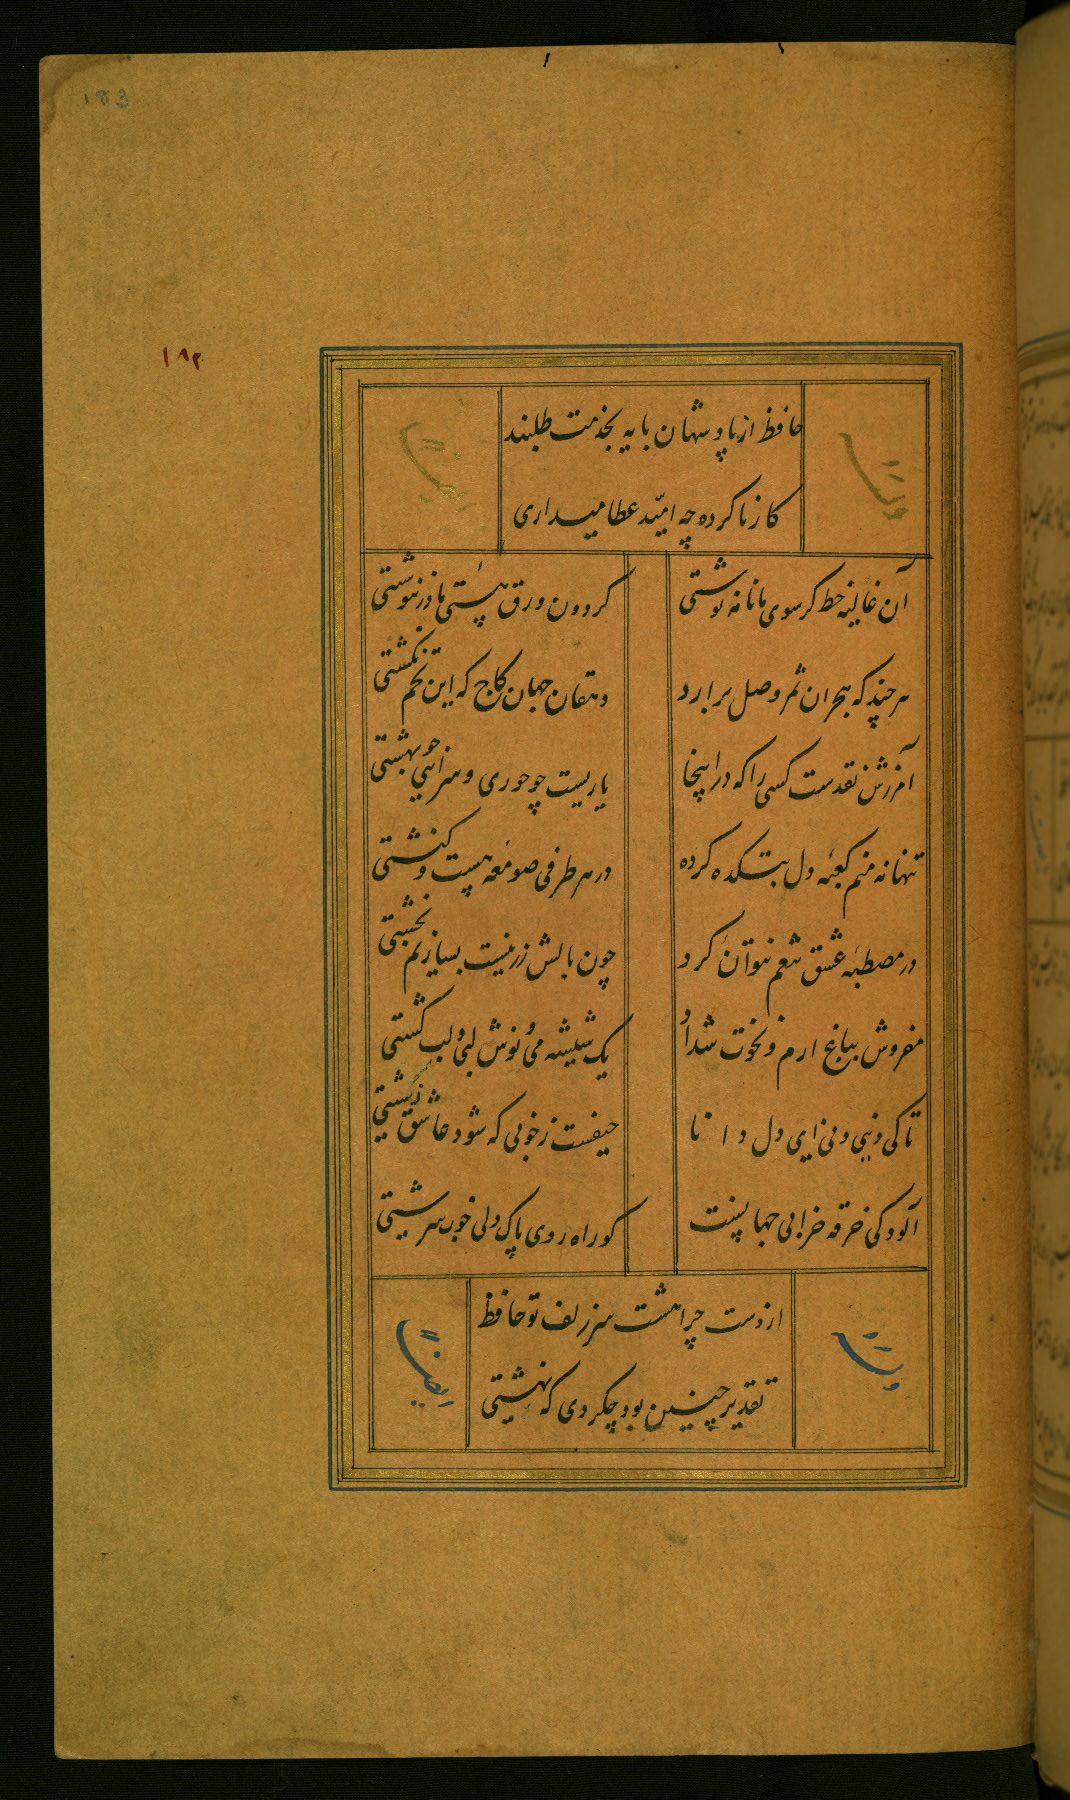 183
۱۸۲
حافظ از پادشهان پایه بخدمت طلبند
کار ناکرده چه امید عطا میداری
وله
ایضا
آن غالیه خط گر سوی ما نامه نوشتی
گردون ورق هستی ما در ننوشتی
هر چند که هجران ثمر وصل برارد
دهقان جهان کاج که این تخم نکشتی
آمرزش نقدست کسی را که در اینجا
یاریست چو حوری و سرایی چو بهشتی
تنها نه منم کعبهٔ دل بتکده کرده
در هر طرفی صومعه هست و کنشتی
در مصطبهٔ عشق تنعم نتوان کرد
چون بالش زر نیست بسازیم بخشتی
مفروش بباغ ارم و نخوت شداد
یک شیشه می و نوش لبی و لب کشتی
تا کی دنیی دنی ای دل دانا
حیفست ز خوبی که شود عاشق زشتی
آلودگی خرقه خرابی جهانست
کو راه روی پاک دلی خوب سرشتی
از دست چرا هشت سر زلف تو حافظ
تقدیر چنین بود چکردی که نهشتی
وله
ایضا